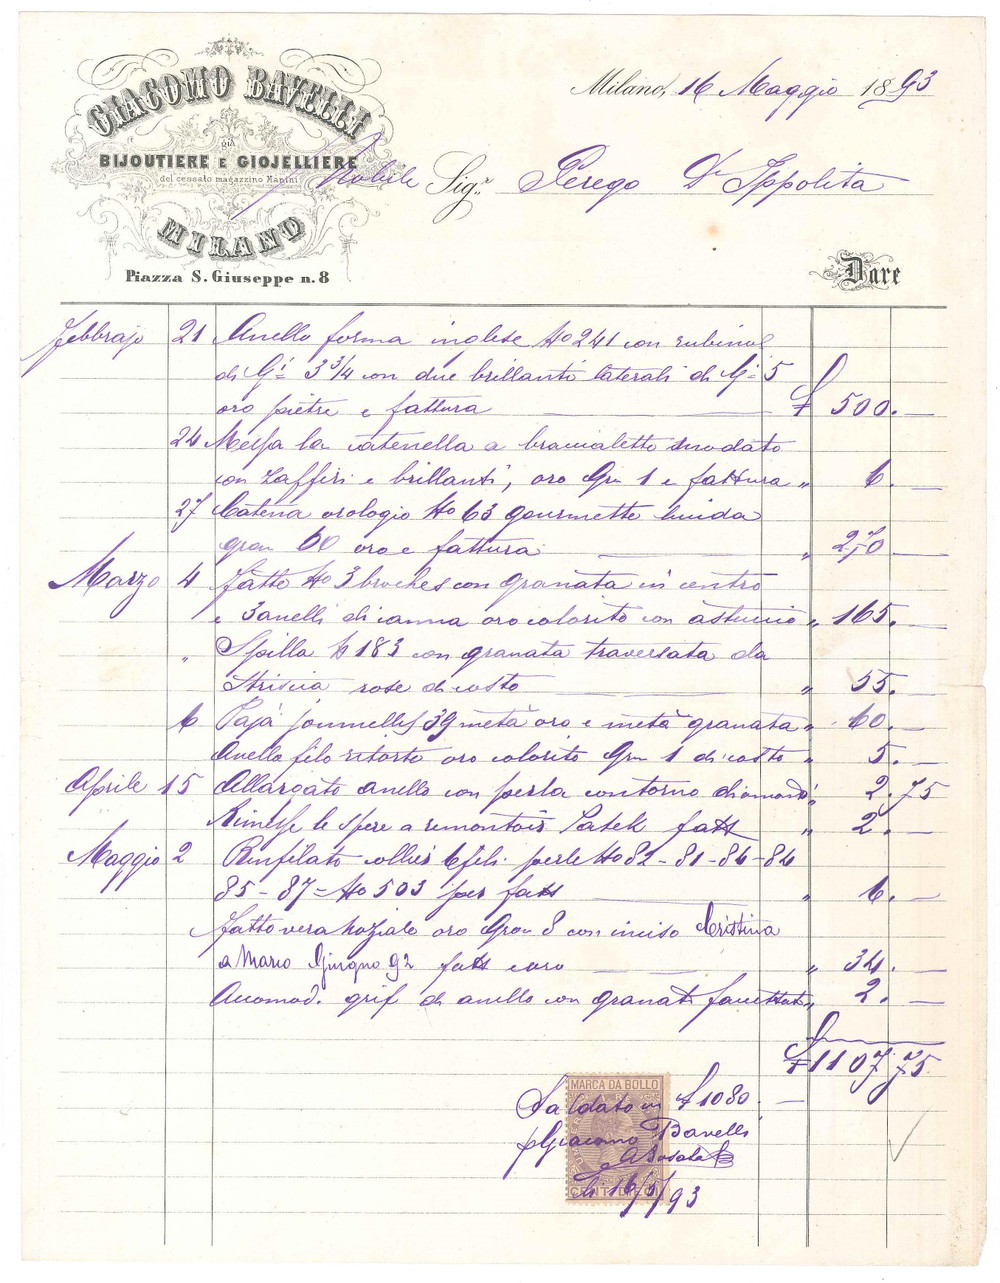 GIACOMO BAVELLI
già
BIJOUTIERE E GIOJELLIERE
del cessato magazzino Manini
MILANO
Piazza S. Giuseppe n. 8
Milano, 16 Maggio 1893
Nobile Sigr. Perego Da Ippolita
Dare
Febbrajo 21 Anello forma inglese No 241 con rubino
di Gi 3 3/4 con due brillanti laterali di Gi 5
oro pietre e fattura £ 500.—
24 Messa la catenella a braccialetto snodato
con zaffiri e brillanti, oro Gm 1 e fattura „ 6.—
27 Catena orologio No 63 gourmette lucida
gram 60 oro e fattura „ 270—
Marzo 4 Fatto No 3 broches con granata in centro
e 3 anelli di canna oro colorito con astuccio „ 165.—
„ Spilla No 183 con granata traversata da
striscia rose di costo „ 55.—
6 Pajà jounnelles 39 metà oro e metà granata „ 60.—
Anello filo ritorto oro colorito Gm 1 di costo „ 5.—
Aprile 15 Allargato anello con perla contorno diamanti „ 2.75
Rimesse le spere a remontoir Patek fatt „ 2.—
Maggio 2 Rinfilato collier 6 fili perle No 82-81-84-84
85-87= No 503 per fatt „ 6.—
Fatto vera nuziale oro Gram 8 con inciso Cristina
a Mario Giugno 92 fatt e oro „ 34.—
Accomod. grif di anello con granati faccettati „ 2.—
£ 1107.75
MARCA DA BOLLO
Saldato in £ 1080.—
p Giacomo Bavelli
CENT. DIECI
li 16/5/93